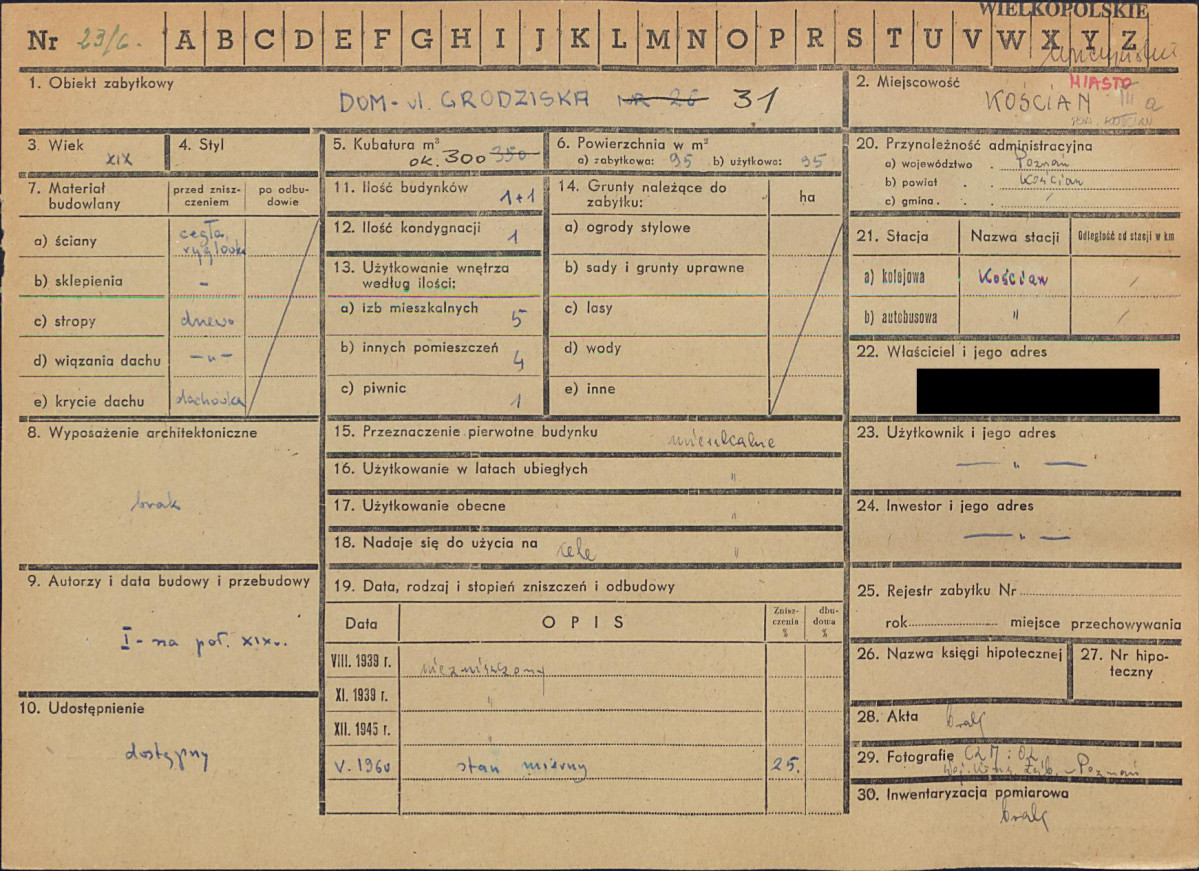 WIELKOPOLSKIE
Nr 23/6. A B C D E F G H I J K L M N O P R S T U V W X Y Z
1. Obiekt zabytkowy
DOM - ul. GRODZISKA NR 26 31
2. Miejscowość MIASTO
KOŚCIAN III a
POW. KOŚCIAN
3. Wiek
XIX
4. Styl
5. Kubatura m³
ok. 300 350
6. Powierzchnia w m²
a) zabytkowa: 95 b) użytkowa: 95
7. Materiał budowlany
przed zniszczeniem
po odbudowie
a) ściany cegła, ryglówka
b) sklepienia -
c) stropy drewo
d) wiązania dachu -„-
e) krycie dachu dachówka
8. Wyposażenie architektoniczne
brak
9. Autorzy i data budowy i przebudowy
I - na poł. XIX w.
10. Udostępnienie
dostępny
11. Ilość budynków 1+1
12. Ilość kondygnacji 1
13. Użytkowanie wnętrza
według ilości:
a) izb mieszkalnych 5
b) innych pomieszczeń 4
c) piwnic 1
14. Grunty należące do
zabytku:
ha
a) ogrody stylowe
b) sady i grunty uprawne
c) lasy
d) wody
e) inne
15. Przeznaczenie pierwotne budynku mieszkalne
16. Użytkowanie w latach ubiegłych "
17. Użytkowanie obecne "
18. Nadaje się do użycia na cele "
19. Data, rodzaj i stopień zniszczeń i odbudowy
Data
OPIS
Zniszczenia %
dbudowa %
VIII. 1939 r. niezniszczony
XI. 1939 r. "
XII. 1945 r. "
V. 1960 stan mierny 25.
20. Przynależność administracyjna
a) województwo Poznań
b) powiat Kościan
c) gmina /
21. Stacja
Nazwa stacji
Odległość od stacji w km
a) kolejowa Kościan /
b) autobusowa " /
22. Właściciel i jego adres
23. Użytkownik i jego adres
— „ —
24. Inwestor i jego adres
— „ —
25. Rejestr zabytku Nr
rok miejsce przechowywania
26. Nazwa księgi hipotecznej
27. Nr hipoteczny
28. Akta brak
29. Fotografie
Poznań
30. Inwentaryzacja pomiarowa
brak